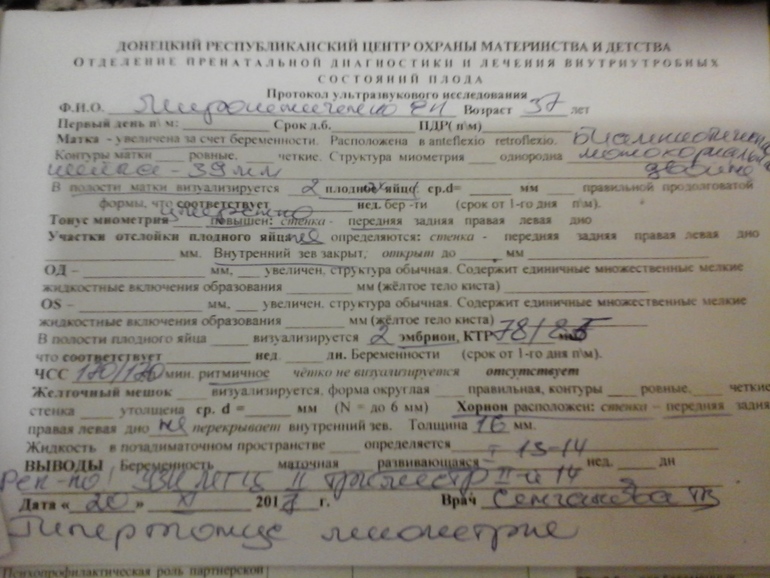 ДОНЕЦКИЙ РЕСПУБЛИКАНСКИЙ ЦЕНТР ОХРАНЫ МАТЕРИНСТВА И ДЕТСТВА
ОТДЕЛЕНИЕ ПРЕНАТАЛЬНОЙ ДИАГНОСТИКИ И ЛЕЧЕНИЯ ВНУТРИУТРОБНЫХ
СОСТОЯНИЙ ПЛОДА
Протокол ультразвукового исследования
Ф.И.О. Возраст 37 лет
Первый день п\м: Срок д.б. ПДР( п\м)
Матка - увеличена за счет беременности. Расположена в anteflexio retroflexio.
Контуры матки ровные, четкие. Структура миометрия однородна
шейка - 39 мм двойня
В полости матки визуализируется 2 плодное яйцо ср.d= мм правильной продолговатой
формы, что соответствует нед. бер -ти (срок от 1-го дня п\м).
Тонус миометрия повышен: стенка - передняя задняя правая левая дно
Участки отслойки плодного яйца не определяются: стенка - передняя задняя правая левая дно
мм. Внутренний зев закрыт; открыт до мм
ОД – мм, увеличен, структура обычная. Содержит единичные множественные мелкие
жидкостные включения образования мм (жёлтое тело киста)
OS – мм, увеличен, структура обычная. Содержит единичные множественные мелкие
жидкостные включения образования мм (жёлтое тело киста)
В полости плодного яйца визуализируется 2 эмбрион, КТР 78/85 мм
что соответствует нед. дн. Беременности (срок от 1-го дня п\м).
ЧСС мин. ритмичное чётко не визуализируется отсутствует
Желточный мешок визуализируется, форма округлая правильная, контуры ровные, четкие
стенка утолщена ср. d = мм (N = до 6 мм) Хорион расположен: стенка – передняя задняя
правая левая дно не перекрывает внутренний зев. Толщина 16 мм.
Жидкость в позадиматочном пространстве определяется
I 13-14
ВЫВОДЫ Беременность маточная развивающаяся нед. дн
II триместр
Дата « 20 » XI 2017 г. Врач
Гипертонус миометрия
Психопрофилактическая роль партнерской